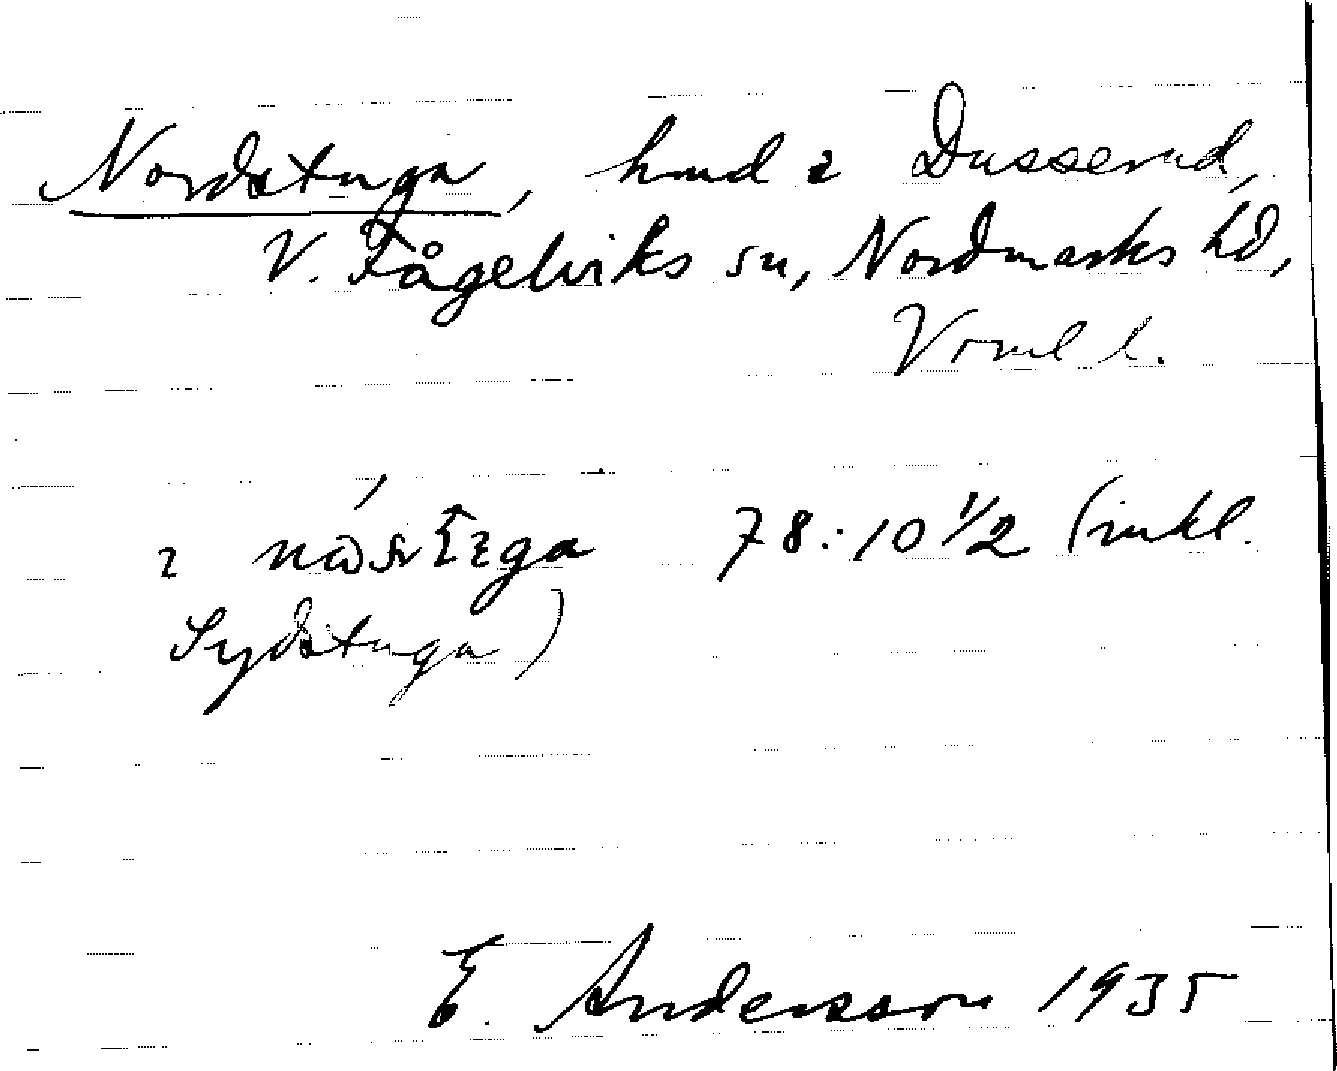 Nordstuga, hmd i Dusserud,
V. Fågelviks sn, Nordmarks hd,
Verml l.
78:10 1/2 (inkl.
Sydstuga)
E. Andersson 1935